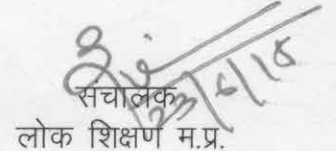 23/6/18
संचालक
लोक शिक्षण म.प्र.